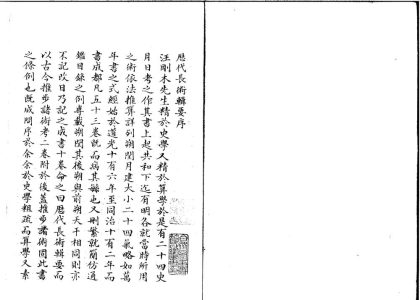 歷代長術輯要序
汪剛木先生精於史學又精於算學於是有二十四史
月日考之作其書上起共和下迄有明各就當時所用
之術依法推算詳列朔閏月建大小二十四氣略如萬
年書之式經始於道光十有六年至同治十有二年而
書成都凡五十三卷既而病其繁也又刪繁就簡仿通
鑑目錄之例專載朔閏其後朔與前朔天干相同則亦
不記改日乃記之成書十卷命之曰歷代長術輯要而
以古今推步諸術考二卷附於後蓋推步諸術固此書
之條例也既成問序於余余於史學粗疏而算學又素